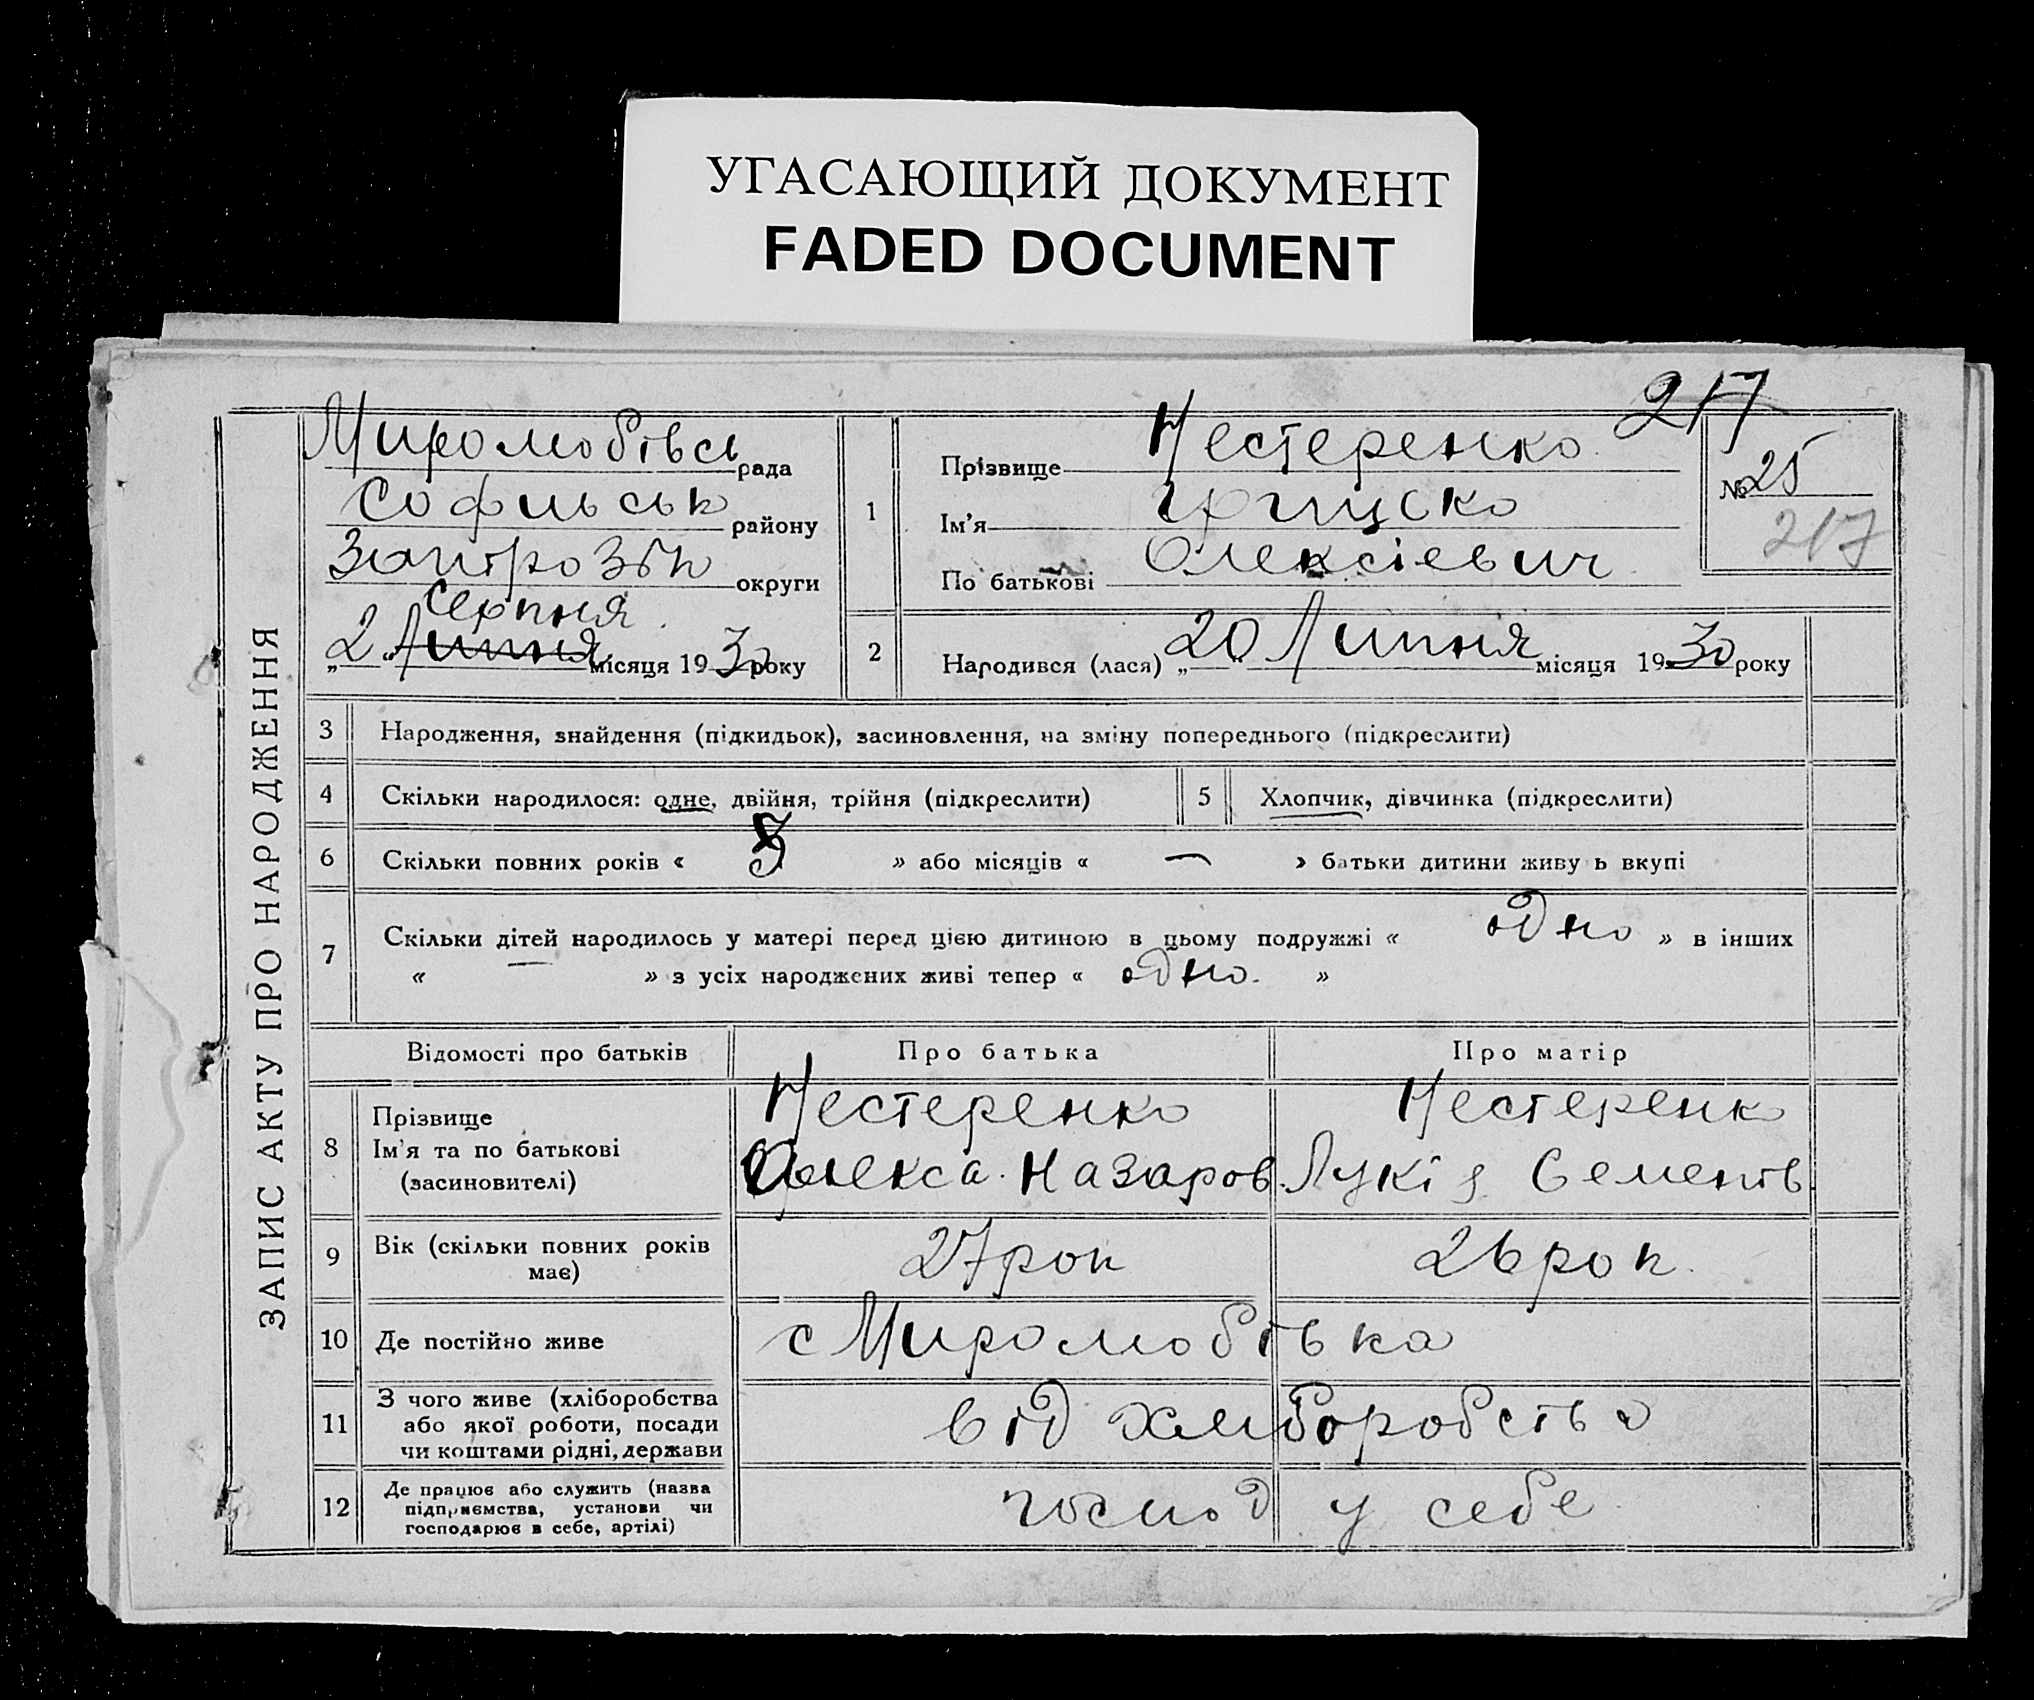 УГАСАЮЩИЙ ДОКУМЕНТ
FADED DOCUMENT
217
ЗАПИС АКТУ ПРО НАРОДЖЕННЯ
Миролюбівсь рада
Софиськ району
округи
Серпня
„2“ Липня місяця 1930 року
1
Прізвище Нестеренко
Ім’я Грицско
По батькові Олексієвич
№ 25
217
2
Народився (лася) „20“ Липня місяця 1930 року
3 Народження, знайдення (підкидьок), засиновлення, на зміну попереднього (підкреслити)
4 Скільки народилося: одне, двійня, трійня (підкреслити)
5 Хлопчик, дівчинка (підкреслити)
6 Скільки повних років « 5 » або місяців « — » батьки дитини живу ь вкупі
7 Скільки дітей народилось у матері перед цією дитиною в цьому подружжі « одно » в інших
« — » з усіх народжених живі тепер « одно. »
Відомості про батьків Про батька Про матір
8 Прізвище
Ім’я та по батькові
(засиновителі)
Нестеренко
Олекса. Назаров.
Нестеренк
Лукія Сементв.
9 Вік (скільки повних років
має)
27 рок
26 рок.
10 Де постійно живе с Миролюбівка
11 З чого живе (хліборобства
або якої роботи, посади
чи коштами рідні, держави
від хліборобства
12 Де працює або служить (назва
підприємства, установи чи
господарює в себе, артілі)
господ у себе